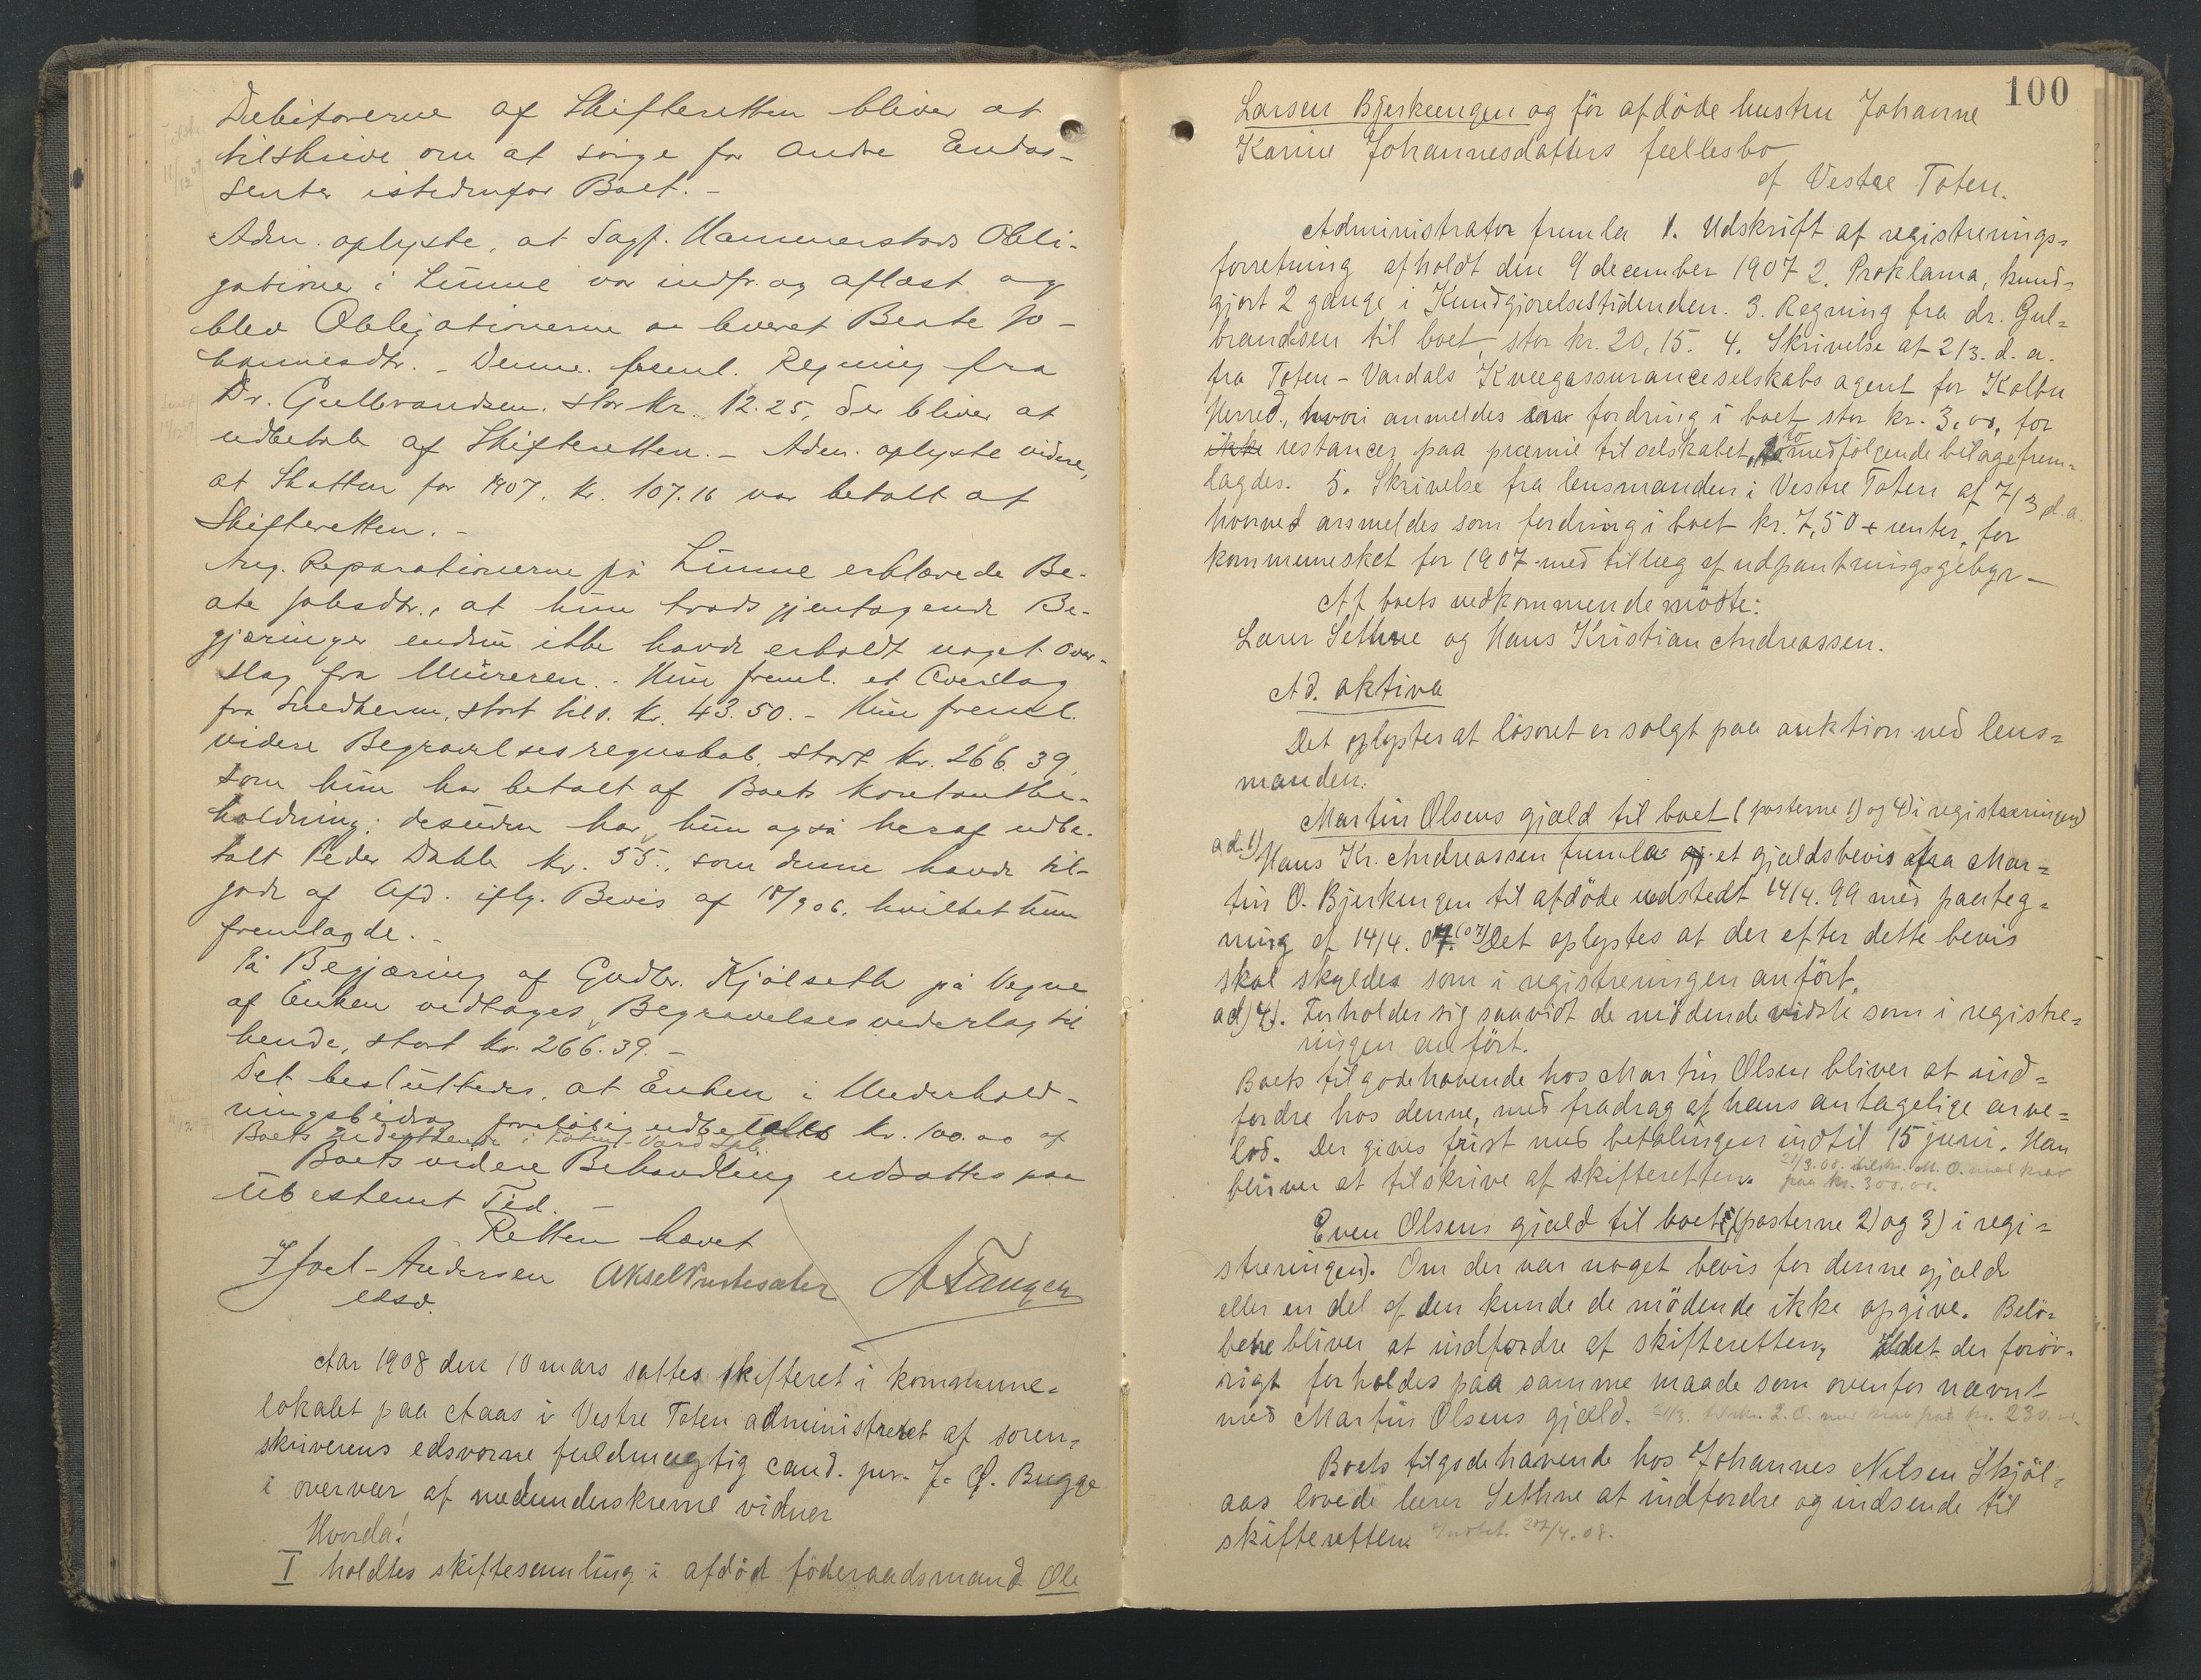 Debitorerne af Skifteretten bliver at
tilskrive om at sørge for andre Endos-
senter istedenfor Boet. -
Adm. oplyste, at Sagf. Hammerstads Obli-
gationer i Linne var indfr. og aflæst og
blev Obligationerne leveret Beate Jo-
hannesdtr. - Denne. freml. Regning fra
Dr. Gulbrandsen. stor Kr. 12.25, der bliver at
udbetale af Skifteretten. - Adm. oplyste videre,
at Skatten for 1907, Kr. 107.16 var betalt af
Skifteretten. -
Ang. Reparationerne på Linne erklærede Be-
ate Johsdtr., at hun trods gjentagende Be-
gjæringer endnu ikke havde erholdt noget Over-
slag fra Mureren. - Hun freml. et Overslag
fra Snedkeren, stort tils. Kr. 43.50. - Hun freml.
videre Begravelsesregnskab, stort Kr. 266.39,
som hun har betalt af Boets Kontantbe-
holdning; desuden har hun også heraf udbe-
talt Peder Dahle Kr. 55., som denne havde til-
gode af Afd. iflg. Bevis af 18/9 06, hvilket hun
fremlagde. -
På Begjæring af Gudbr. Kjölseth på Vegne
af Enken vedtages Begravelsesvederlag til
hende, stort Kr. 266.39. -
Det besluttedes, at Enken i Underhold-
ningsbidrag foreløbig udbetales Kr. 100.00 af
Boets Indestående i Toten-Vard. Spb.
Boets videre Behandling udsattes paa
ubestemt Tid. -
Retten hævet
Joel-Andersen
edsv.
A Tangen
Aar 1908 den 10 mars sattes skifteret i kommune-
lokalet paa Aas i Vestre Toten administreret af soren-
skriverens edsvorne fuldmægtig cand. jur. J. Q. Bugge
i overvær af nedenunderskrevne vidner
Hvorda!
I holdtes skiftesamling i afdød föderaadsmand Ole
100
Larsen Bjerkeengen og för afdöde hustru Johanne
Karine Johannesdatters fællesbo
af Vestre Toten.
Administrator fremla 1. Udskrift af registrerings-
forretning afholdt den 9 december 1907 2. Proklama, kund-
gjort 2 gange i Kundgjørelsestidenden. 3. Regning fra dr. Gul-
brandsen til boet, stor kr. 20,15. 4. Skrivelse af 2/3. d. a.
fra Toten-Vardals Kvægassuranceselskabs agent for Kolbu
Herred, hvori anmeldes fordring i boet stor kr. 3,00, for
ikke restancer paa præmie til selskabet, to medfölgende bilage frem-
lagdes. 5. Skrivelse fra lensmanden i Vestre Toten af 7/3 d.a.
hvorved anmeldes som fordring i boet kr. 7,50 + renter, for
kommuneskat for 1907 med tillæg af udpantningsgebyr -
Af boets vedkommende mödte:
Lærer Sethne og Hans Kristian Andreassen.
Ad. aktiva
Det oplystes at lösöret er solgt paa auktion ved lens-
manden.
Martin Olsens gjæld til boet (posterne 1) og 4) i registreringen)
ad. 1) Hans Kr. Andreassen fremla et gjældsbevis fra Mar-
tin O. Bjerkengen til afdöde udstedt 14/4. 99 med paateg-
ning af 14/4. 07 (07) Det oplystes at der efter dette bevis
skal skyldes som i registreringen anfört.
ad) 4). Forholder sig saavidt de mödende vidste som i registre-
ringen anfört.
Boets tilgodehavende hos Martin Olsen bliver at ind-
fordre hos denne, med fradrag af hans antagelige arve-
lod. Der gives frist med betalingen indtil 15 juni. Han
bliver at tilskrive af skifteretten. 21/3.08. tilskr. M. O. med krav
paa kr. 300.00.
Even Olsens gjæld til boet (posterne 2) og 3) i regi-
streringen). Om der var noget bevis for denne gjæld
eller en del af den kunde de mödende ikke opgive. Belö-
bene bliver at indfordre af skifteretten, idet der forøv-
rigt forholdes paa samme maade som ovenfor nævnt
med Martin Olsens gjæld. 21/3. tilskr. E. O. med krav paa kr. 230.00
Boets tilgodehavende hos Johannes Nilsen Skjöl-
aas lovede lærer Sethne at indfordre og indsende til
skifteretten. Indbet. 27/4.08.